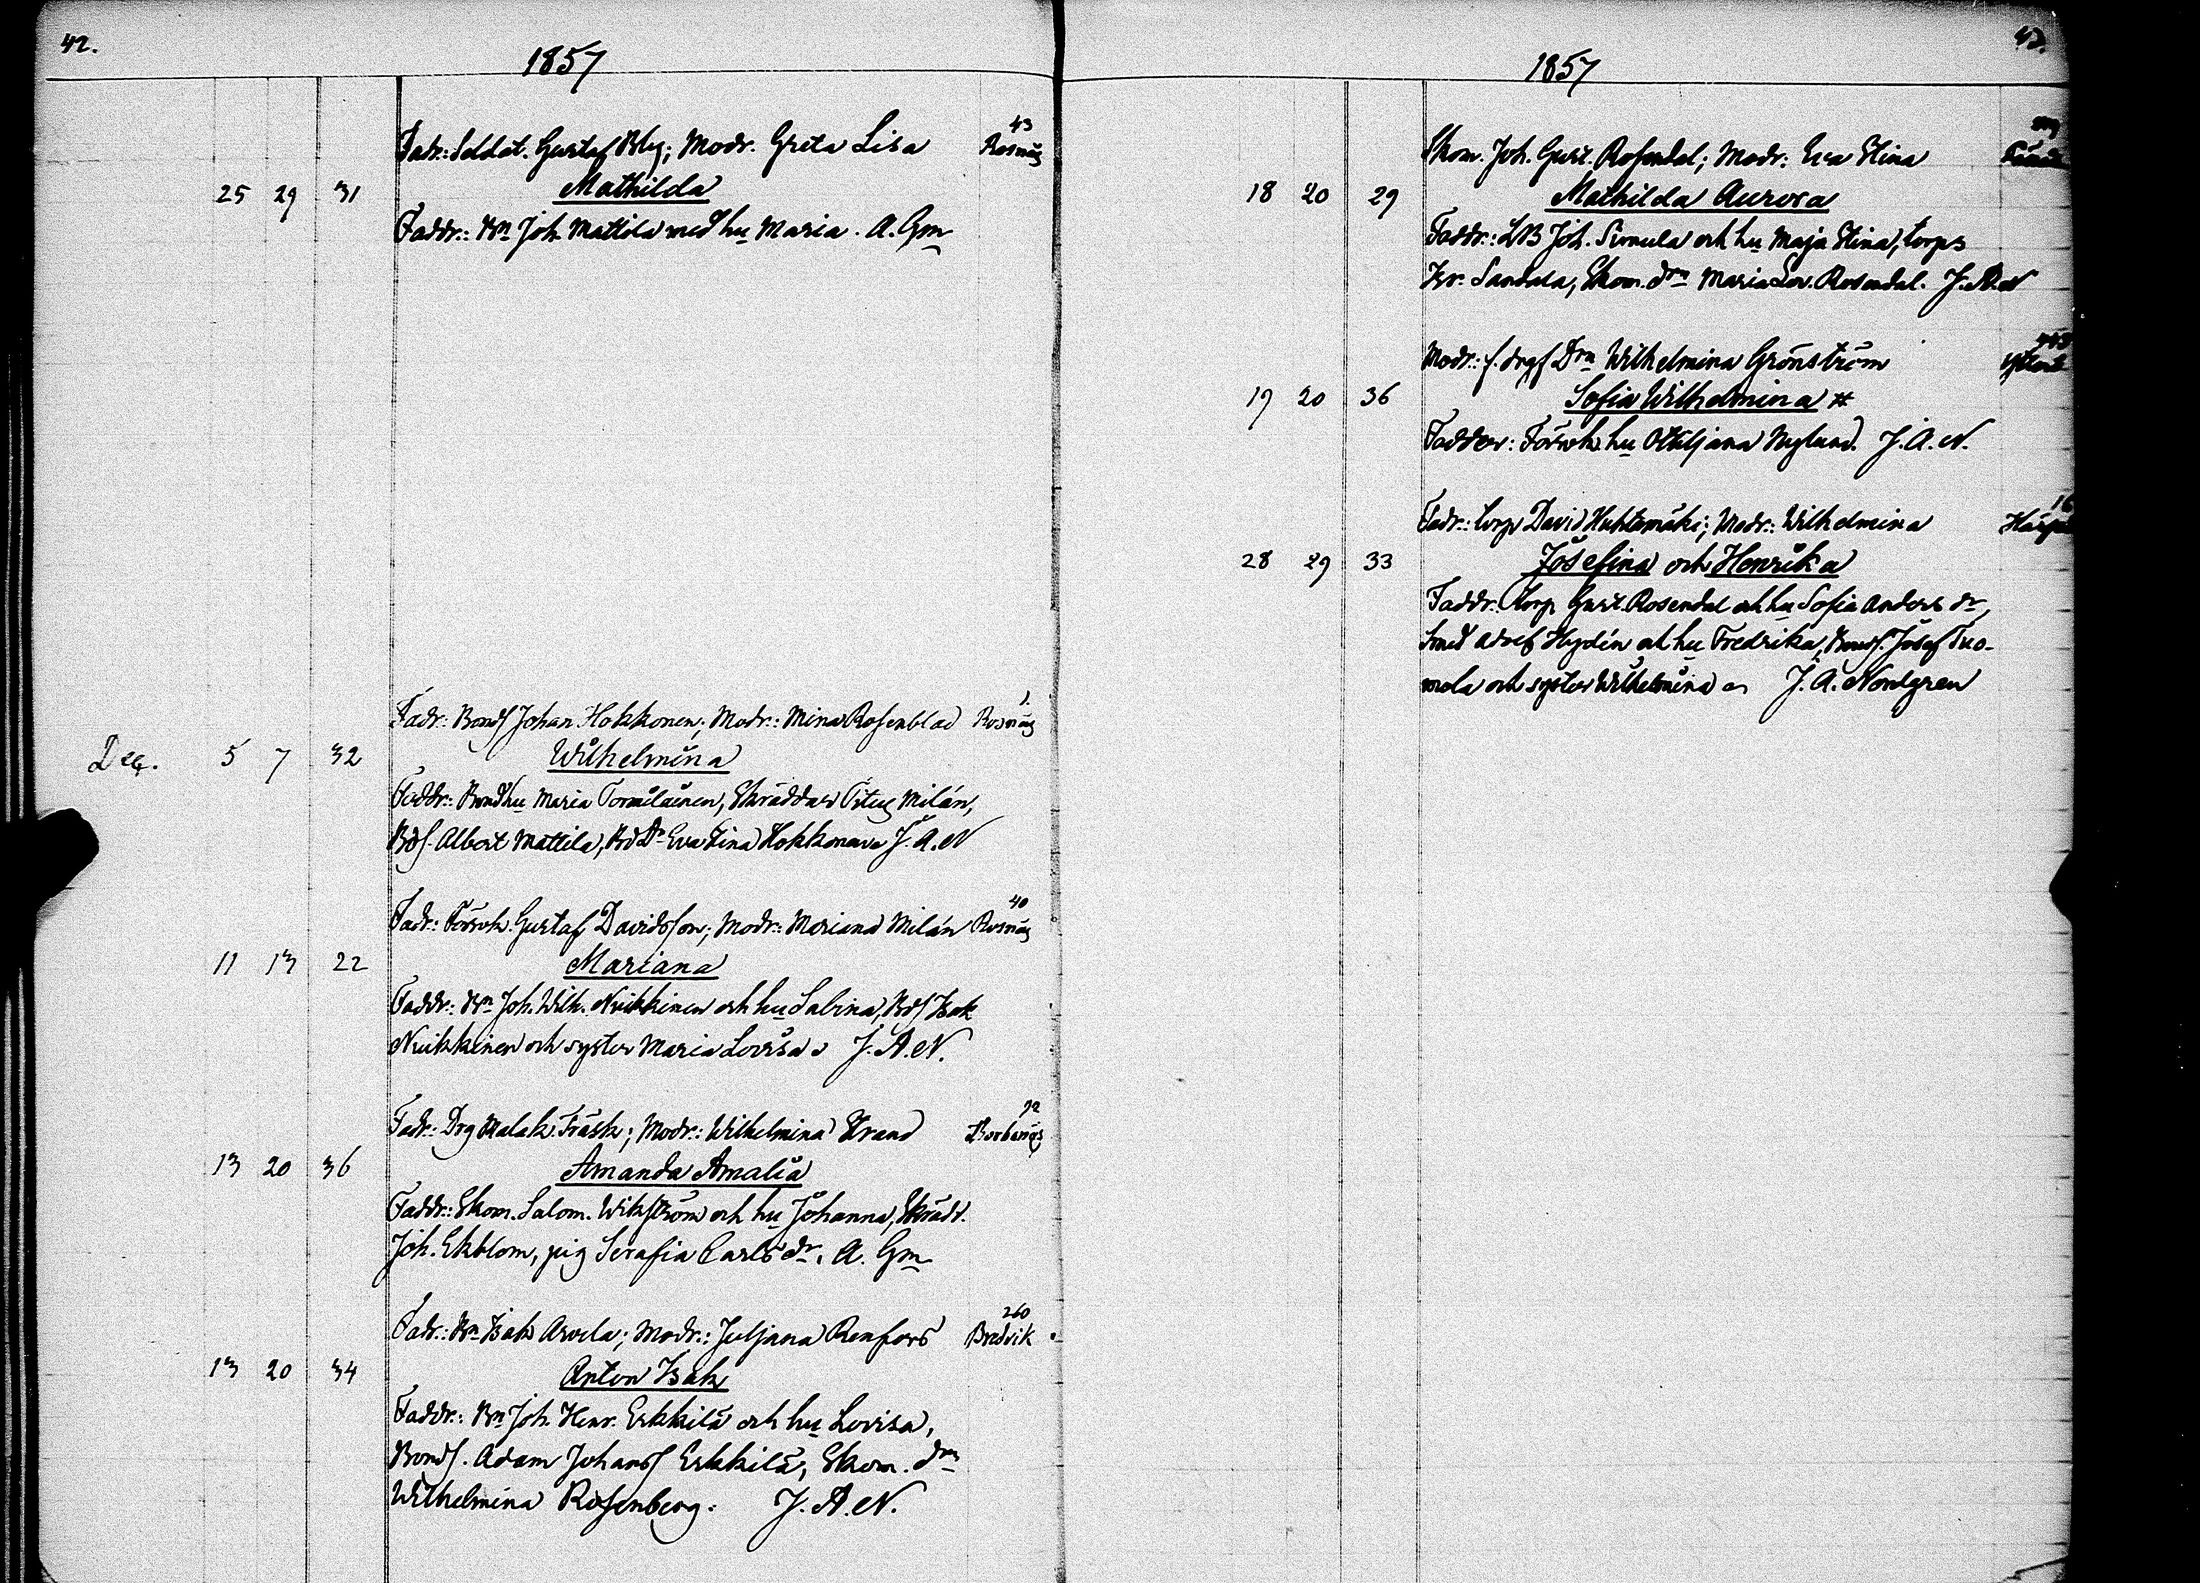 42.
1857
Fadr: Soldat. Gustaf Bly; Modr. Greta Lisa
43
Rosnäs
25 29 31 Mathilda
Faddr: Bn Joh. Mattila med hu Maria. A. Gm
Fadr: Bonds Johan Hokkonen; Modr: Mina Rosenblad
1.
Rosnäs
Dec. 5 7 32 Wilhelmina
Faddr: Bond hu Maria Tormilainen, Skräddar Titus Milán,
Bds. Albert Mattila, Bd Dr Eva Stina Hokkonen J. A. N
Fadr: Försvk. Gustaf Davidsson; Modr: Mariana Milán
40
Rosnäs
11 13 22 Mariana
Faddr: Bn Joh. Wilh. Nuikkinen och hu Sabina, Bds Isak
Nuikkinen och syster Maria Lovisa J. A. N.
Fadr: Drg Malak. Träsk; Modr: Wilhelmina Strand
72
13 20 36 Amanda Amalia
Faddr: Skom. Salom. Wikström och hu Johanna, Skrädd.
Joh. Ekblom, pig Serafia Carls dr. A. Gm
Fadr: Bn Isak Arvela; Modr: Juljana Renfors
260
Bredvik
13 20 34 Anton Isak
Faddr: Bn Joh. Henr. Erkkilä och hu Lovisa,
Bonds. Adam Johans Erkkilä, Skom. drn
Wilhelmina Rosenberg. J. A. N.
43.
1857
Skom. Joh. Gust. Rosendal; Modr: Eva Stina
18 20 29 Mathilda Aurora
Faddr: LB Joh. Simula och hu Maja Stina, torps
Kr. Sandala, Skom. drn Maria Lov. Rosendal. J. A. N
Modr: f. drgs Drn Wilhelmina Grönström
19 20 36 Sofia Wilhelmina #
Fadder: Försvk hu Ottiljana Nylund. J. A. N.
Fadr: torp David Huhtamäki; Modr: Wilhelmina
16
28 29 33 Josefina och Henrika
Faddr: torp Gust. Rosendal och hu Sofia Anders dr,
Smed Adolf Hydén och hu Fredrika, Bonds. Josef Tuo-
mola och syster Wilhelmina J. A. Nordgren